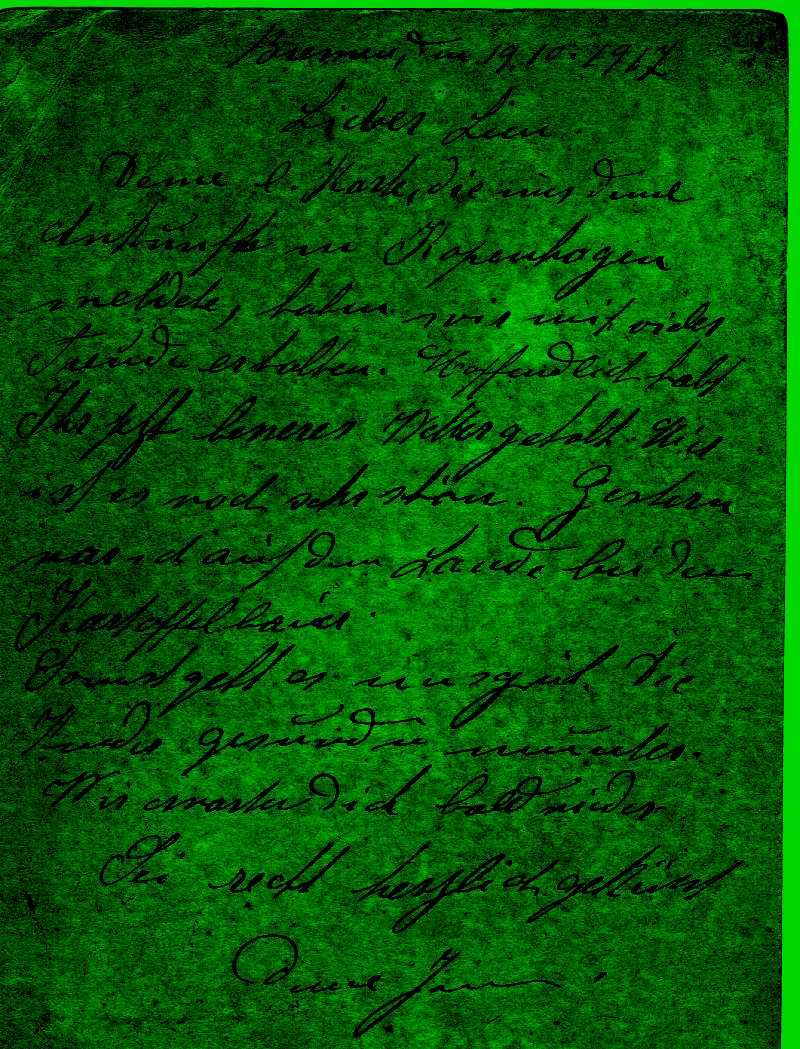 Bremen, den 19.10.1917
Lieber
Deine l. Karte, die uns deine
Ankunft in Kopenhagen
meldete, haben wir mit vieler
Freude erhalten. Hoffendlich habt
Ihr besseres Wetter gehabt. Hier
ist es noch sehr schön. Gestern
war ich auf dem Lande bei dem
Kartoffelbauer.
Sonst geht es uns gut. Die
Kinder gesund u munter.
Wir erwarten Dich bald wieder
Sei recht herzlich geküsst
Deine